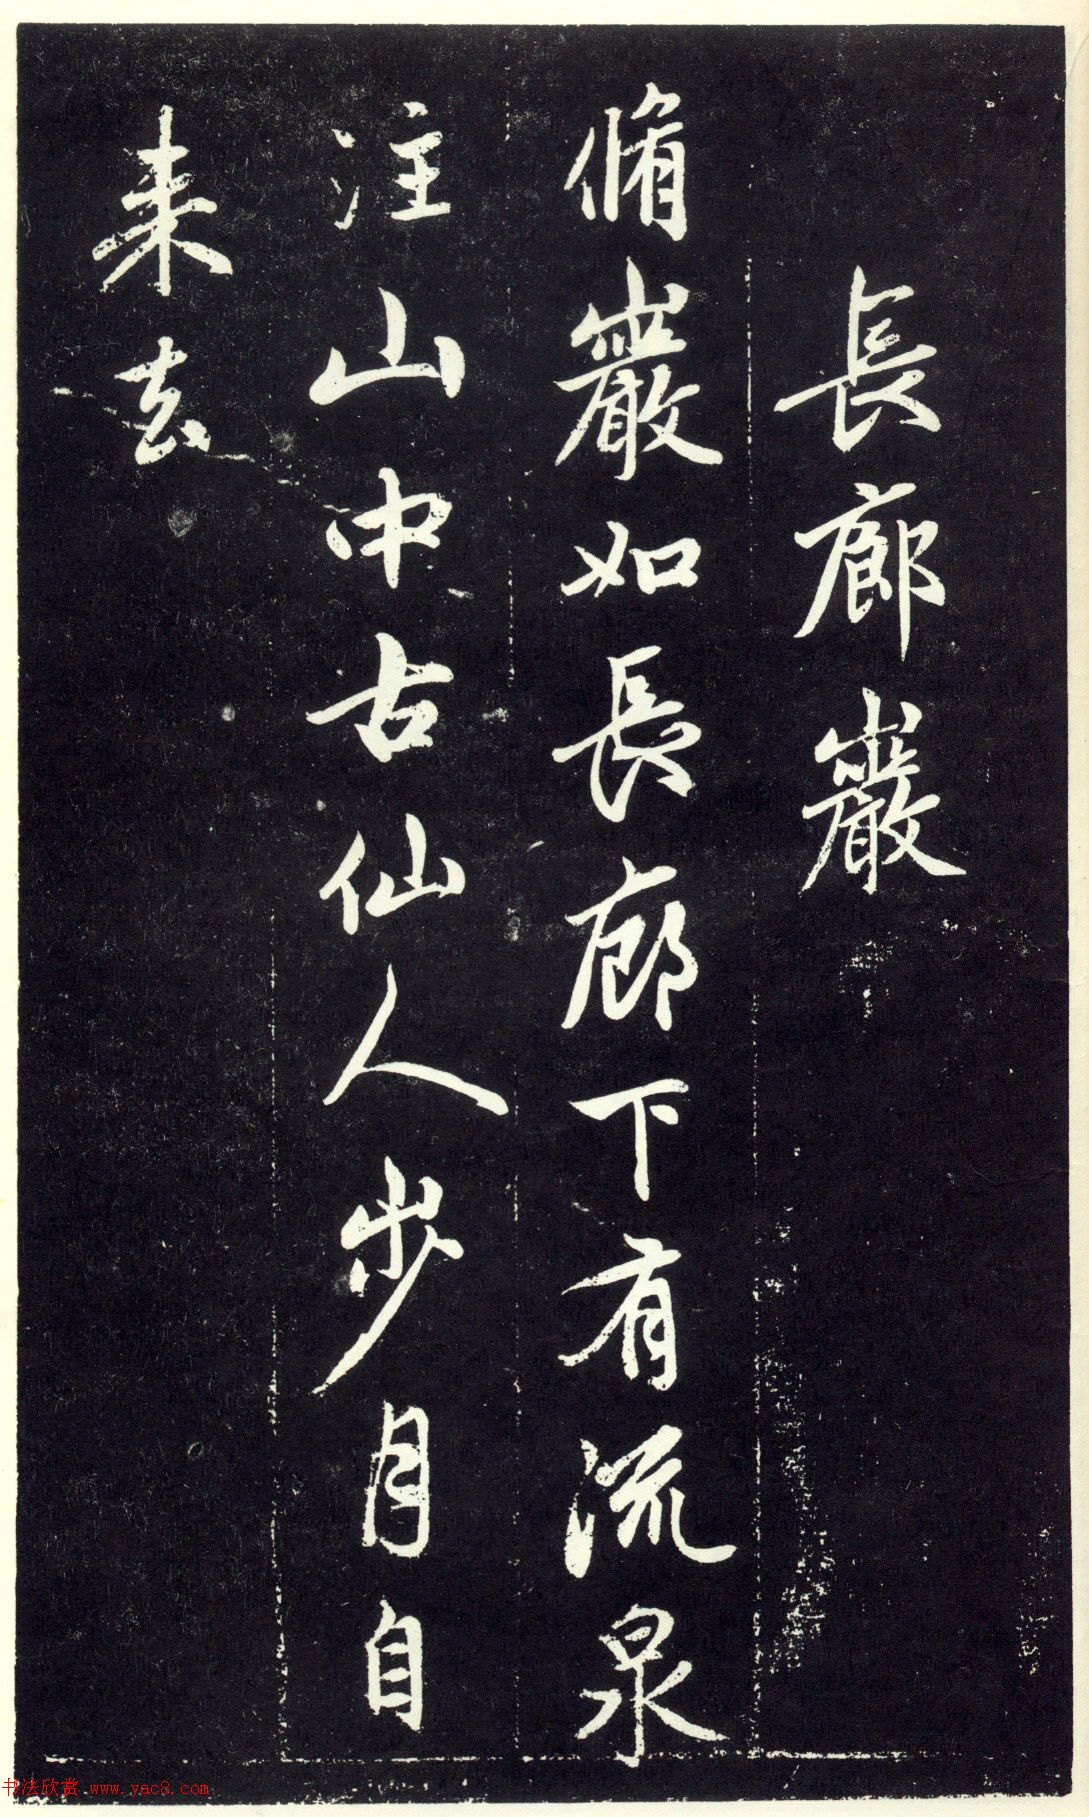 長廊巖
脩巖如長廊下有流泉
注山中古仙人步月自
来去
书法欣赏 www.yac8.com